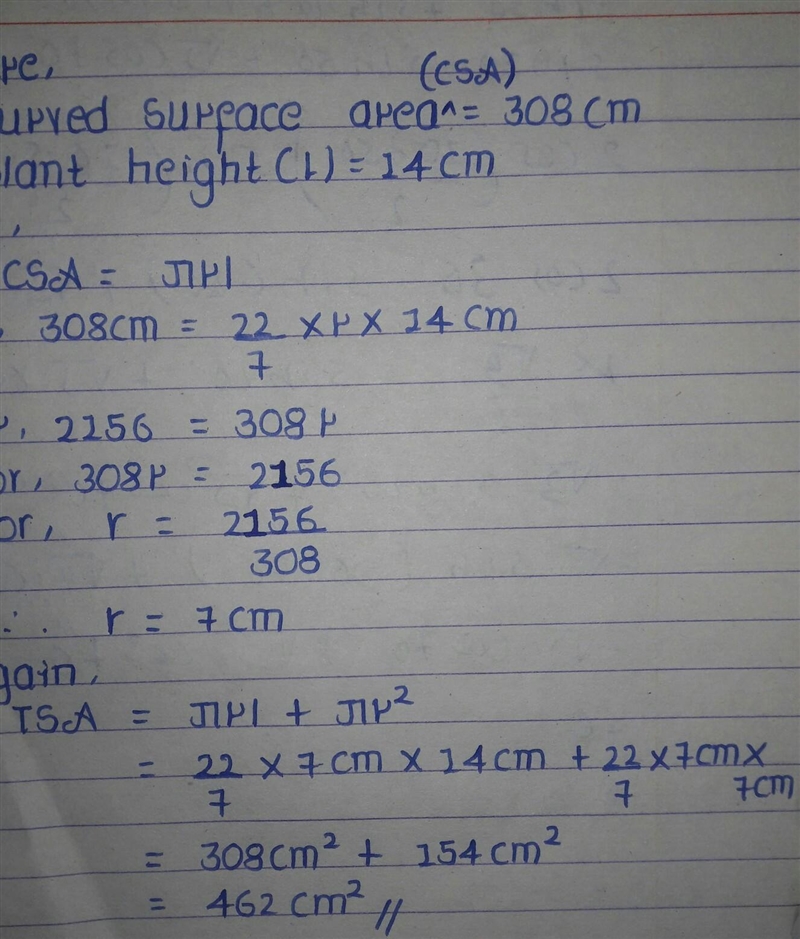 re,
(CSA)
urved surface area^ = 308 cm
lant height (l) = 14 cm
,
CSA = πrl
, 308cm = 22/7 × r × 14 cm
r, 2156 = 308 r
or, 308r = 2156
or, r = 2156/308
∴ r = 7 cm
gain,
TSA = πrl + πr²
= 22/7 × 7 cm × 14 cm + 22/7 × 7cm × 7cm
= 308 cm² + 154 cm²
= 462 cm² //